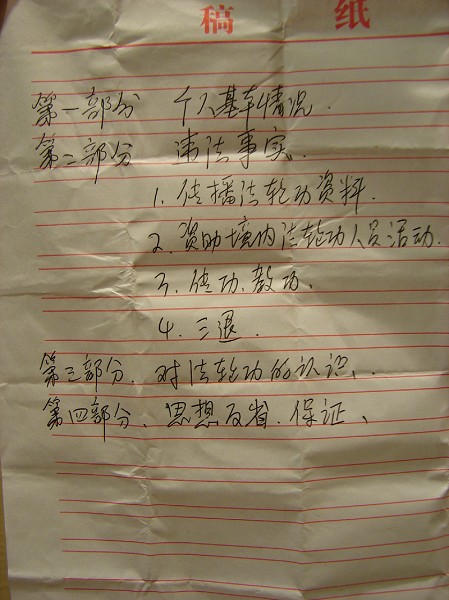 稿 纸
第一部分 个人基本情况.
第二部分 违法事实.
1. 传播法轮功资料.
2. 资助境内法轮功人员活动.
3. 传功、教功、
4. 三退.
第三部分. 对法轮功的认识、
第四部分、思想反省. 保证、